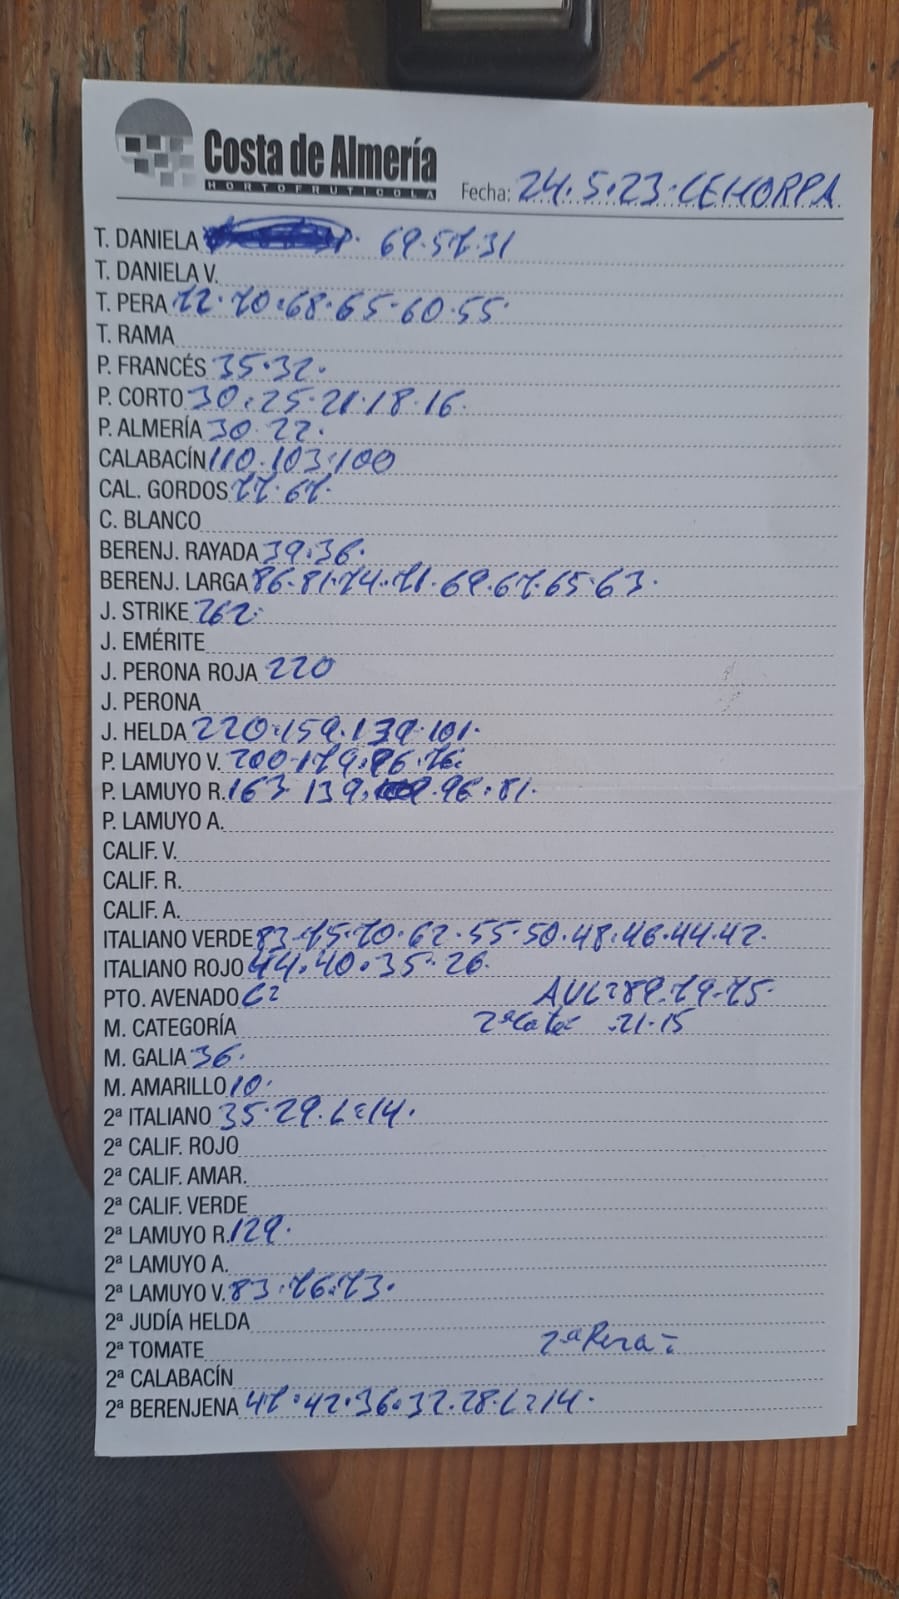 Costa de Almería
HORTOFRUTICOLA
Fecha: 24.5.23. CEHORPA
T. DANIELA 69.57.31
T. DANIELA V.
T. PERA 72.70.68.65.60.55.
T. RAMA
P. FRANCÉS 35.32.
P. CORTO 30.25.21.18.16.
P. ALMERÍA 30.22.
CALABACÍN 110.103.100
CAL. GORDOS 77.67.
C. BLANCO
BERENJ. RAYADA 39.36.
BERENJ. LARGA 86.81.74.71.69.67.65.63.
J. STRIKE 262.
J. EMÉRITE
J. PERONA ROJA 220
J. PERONA
J. HELDA 220.159.139.101.
P. LAMUYO V. 200.179.86.76.
P. LAMUYO R. 163.139.96.81.
P. LAMUYO A.
CALIF. V.
CALIF. R.
CALIF. A.
ITALIANO VERDE 83.75.70.62.55.50.48.46.44.42.
ITALIANO ROJO 44.40.35.26.
PTO. AVENADO 79.75.
M. CATEGORÍA 21.15
M. GALIA 36.
M. AMARILLO 10.
2ª ITALIANO 35.29. 14.
2ª CALIF. ROJO
2ª CALIF. AMAR.
2ª CALIF. VERDE
2ª LAMUYO R. 129.
2ª LAMUYO A.
2ª LAMUYO V. 83.76.73.
2ª JUDÍA HELDA
2ª TOMATE 2ª Pera =
2ª CALABACÍN
2ª BERENJENA 47.42.36.32.28. 14.